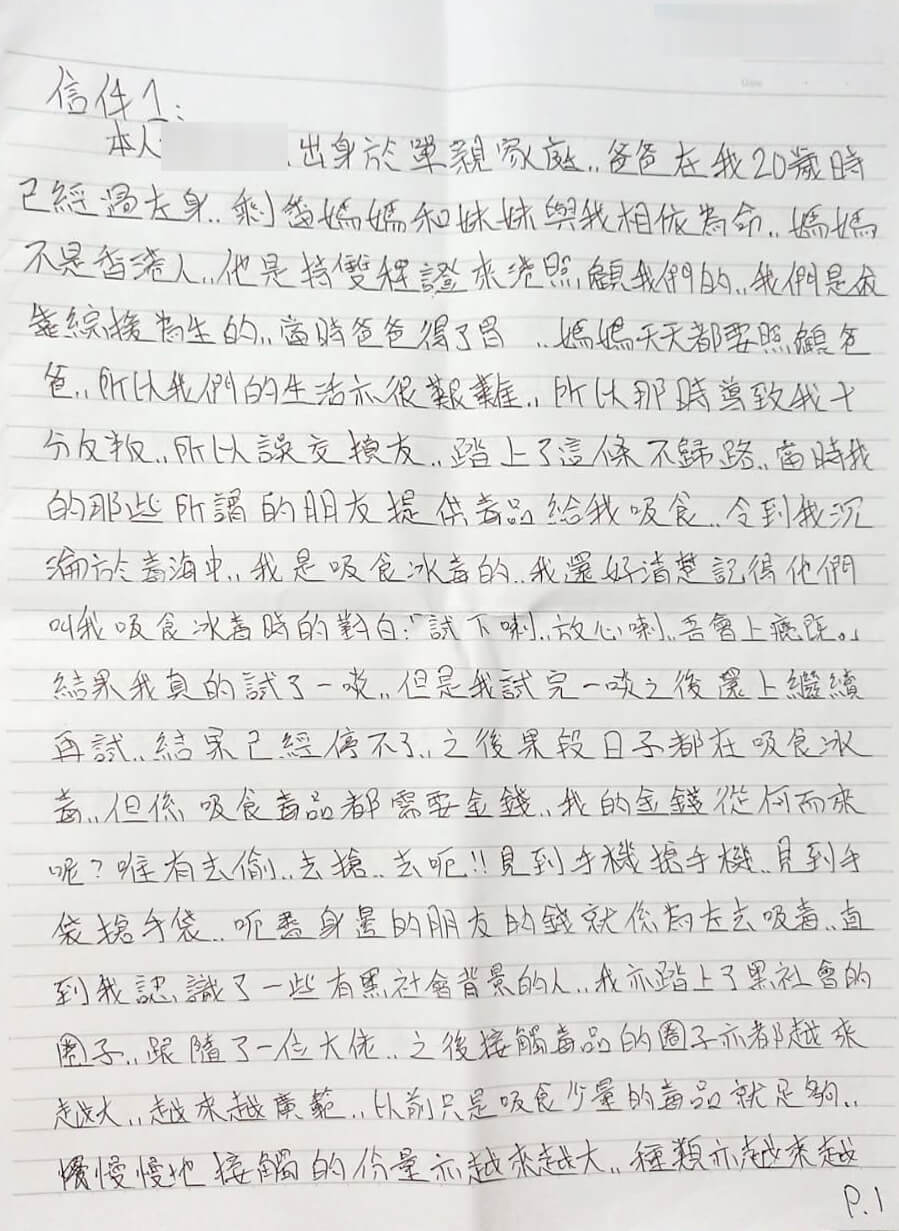 信件1:
本人 出身於單親家庭,,爸爸在我20歲時
已經過左身,,剩番媽媽和妹妹與我相依為命,,媽媽
不是香港人,,他是持雙程證來港照顧我們的,,我們是依
靠綜援為生的,,當時爸爸得了胃 ,,媽媽天天都要照顧爸
爸,,所以我們的生活亦很艱難,,所以那時導致我十
分反叛,,所以誤交損友,,踏上了這條不歸路,,當時我
的那些所謂的朋友提供毒品給我吸食,,令到我沉
淪於毒海中,,我是吸食冰毒的,,我還好清楚記得他們
叫我吸食冰毒時的對白:「試下喇,,放心喇,,吾會上癮既。」
結果我真的試了一啖,,但是我試完一啖之後還上繼續
再試,,結果已經停不了,,之後果段日子都在吸食冰
毒,,但係吸食毒品都需要金錢,,我的金錢從何而來
呢?唯有去偷,,去搶,,去呃!!見到手機搶手機,,見到手
袋搶手袋,,呃盡身邊的朋友的錢就係為左去吸毒,,直
到我認識了一些有黑社會背景的人,,我亦踏上了黑社會的
圈子,,跟隨了一位大佬,,之後接觸毒品的圈子亦都越來
越大,,越來越廣範,,以前只是吸食少量的毒品就足夠,,
慢慢地接觸的份量亦越來越大,,種類亦越來越
P.1